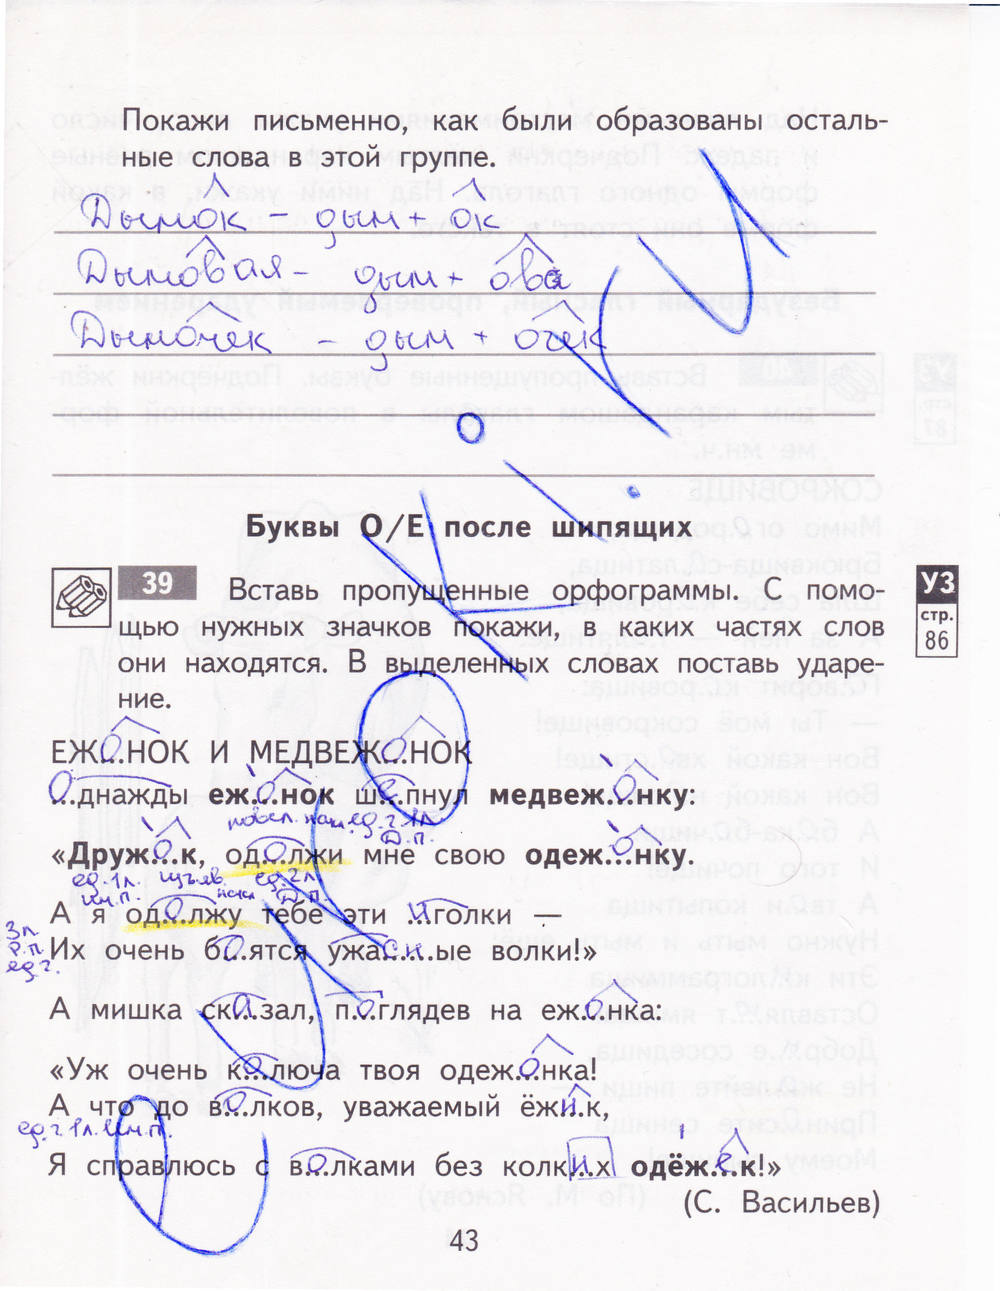 Покажи письменно, как были образованы осталь-
ные слова в этой группе.
Дымок - дым + ок
Дымовая - дым + ова
Дымочек - дым + очек
Буквы О/Е после шипящих
39 Вставь пропущенные орфограммы. С помо-
щью нужных значков покажи, в каких частях слов
они находятся. В выделенных словах поставь ударе-
ние.
УЗ
стр.
86
ЕЖ.О.НОК И МЕДВЕЖ.О.НОК
О...днажды еж.о.нок ш.е.пнул медвеж.о.нку:
ед.ч. 1л.
Д.п.
«Друж.о.к, од.о.лжи мне свою одеж.о.нку.
ед. 1л. изъяв. ед. 2л.
им.п. Д.п.
А я од.о.лжу тебе эти .и.голки —
3л.
Р.п.
ед.ч.
Их очень б.о.ятся ужа.сн.ые волки!»
А мишка ск.а.зал, п.о.глядев на еж.о.нка:
«Уж очень к.о.люча твоя одеж.о.нка!
А что до в.о.лков, уважаемый ёжи.к,
ед.ч. 1л. Им.п.
Я справлюсь с в.о.лками без колк.и.х одёж.е.к!»
(С. Васильев)
43